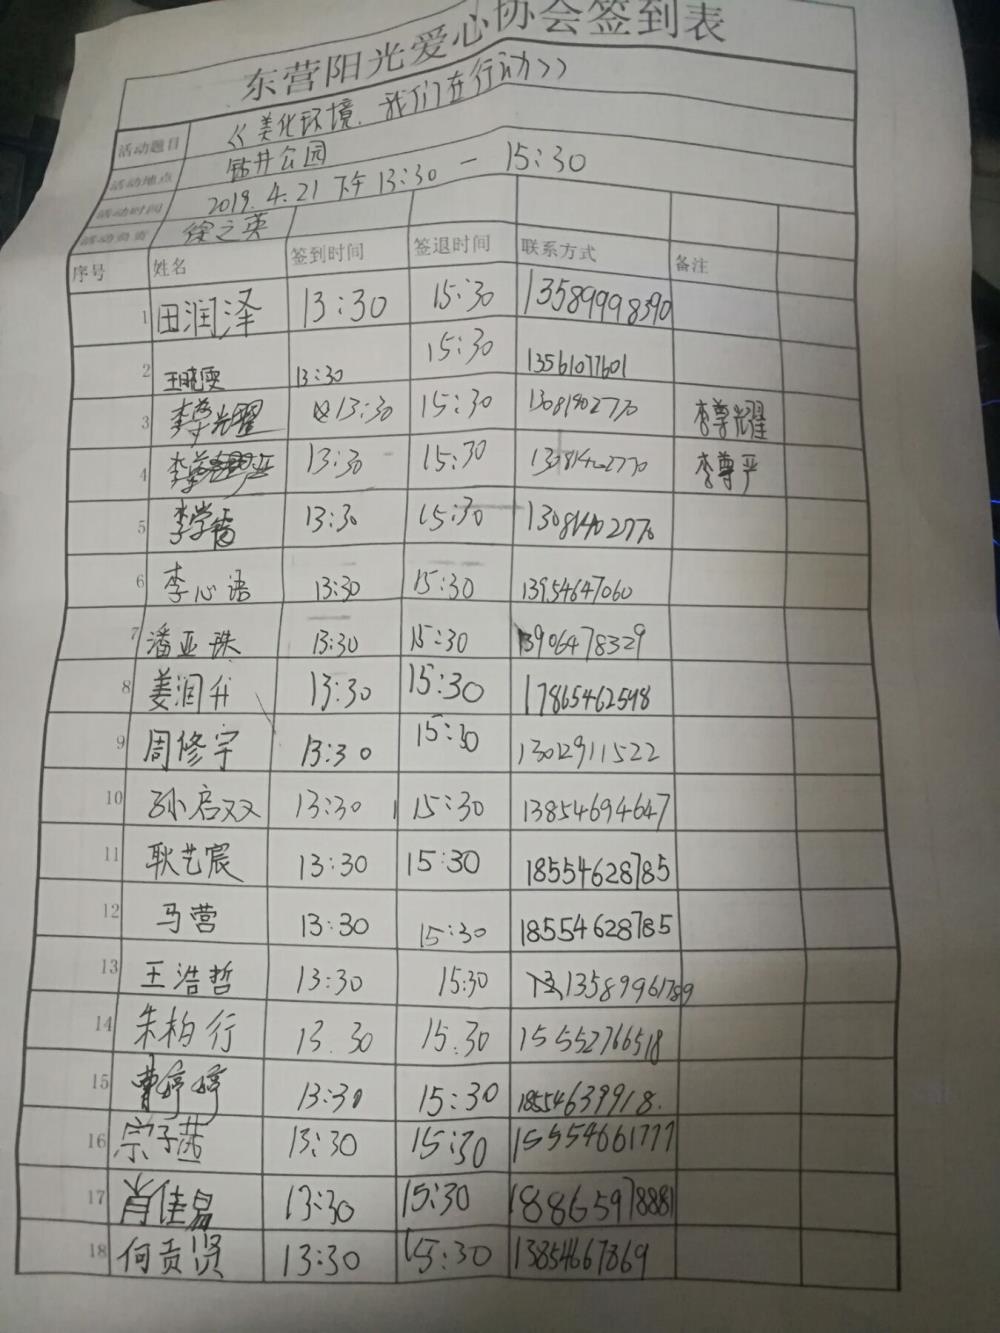 东营阳光爱心协会签到表
活动题目 《美化环境、我们在行动》
活动地点 钻井公园
活动时间 2019.4.21 下午 13:30 — 15:30
活动负责 徐之英
序号 姓名 签到时间 签退时间 联系方式 备注
1 田润泽 13:30 15:30 13589998390
2 王晓雯 13:30 15:30 13561077601
3 李尊光耀 13:30 15:30 13081402770 李尊光耀
4 13:30 15:30 13081402770 李尊严
5 13:30 15:30 13081402770
6 李心语 13:30 15:30 13954647060
7 潘亚珠 13:30 15:30 13906478329
8 姜润升 13:30 15:30 17865462598
9 周修宇 13:30 15:30 13012911522
10 孙启双 13:30 15:30 13854694647
11 耿艺宸 13:30 15:30 18554628785
12 马营 13:30 15:30 18554628785
13 王浩哲 13:30 15:30 13589961789
14 朱柏行 13.30 15.30 15552766518
15 曹婷婷 13:30 15:30 18554639918.
16 宗子茜 13:30 15:30 15554661777
17 肖佳易 13:30 15:30 18865978881
18 何贡贤 13:30 15:30 13854667869